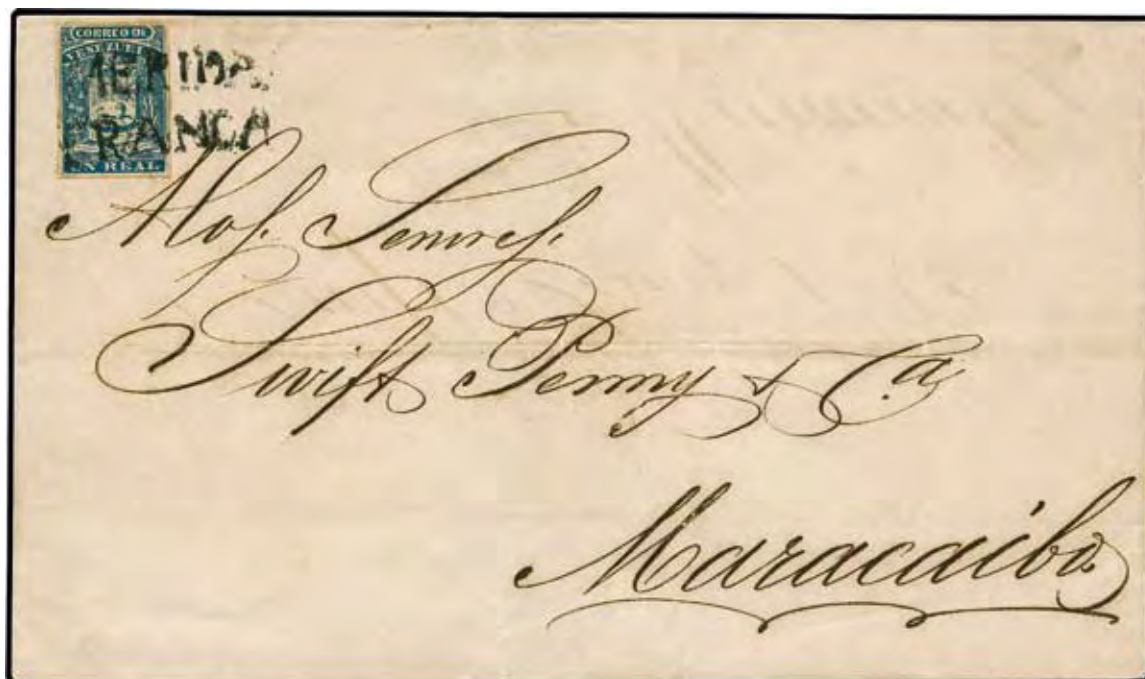 CORREO DE
VENEZUELA
MERIDA.
FRANCA
UN REAL
A los. Senores.
Swift Penny & Ca.
Maracaibo.